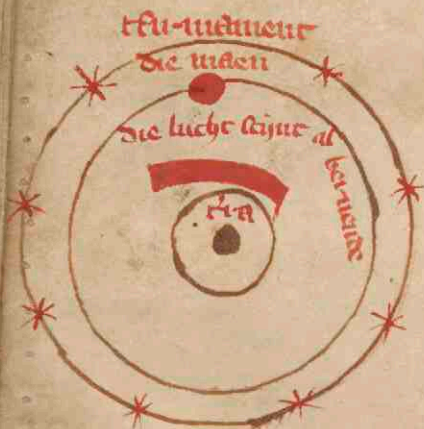 tfirmament
die maen
die lucht scijnt al
bernende